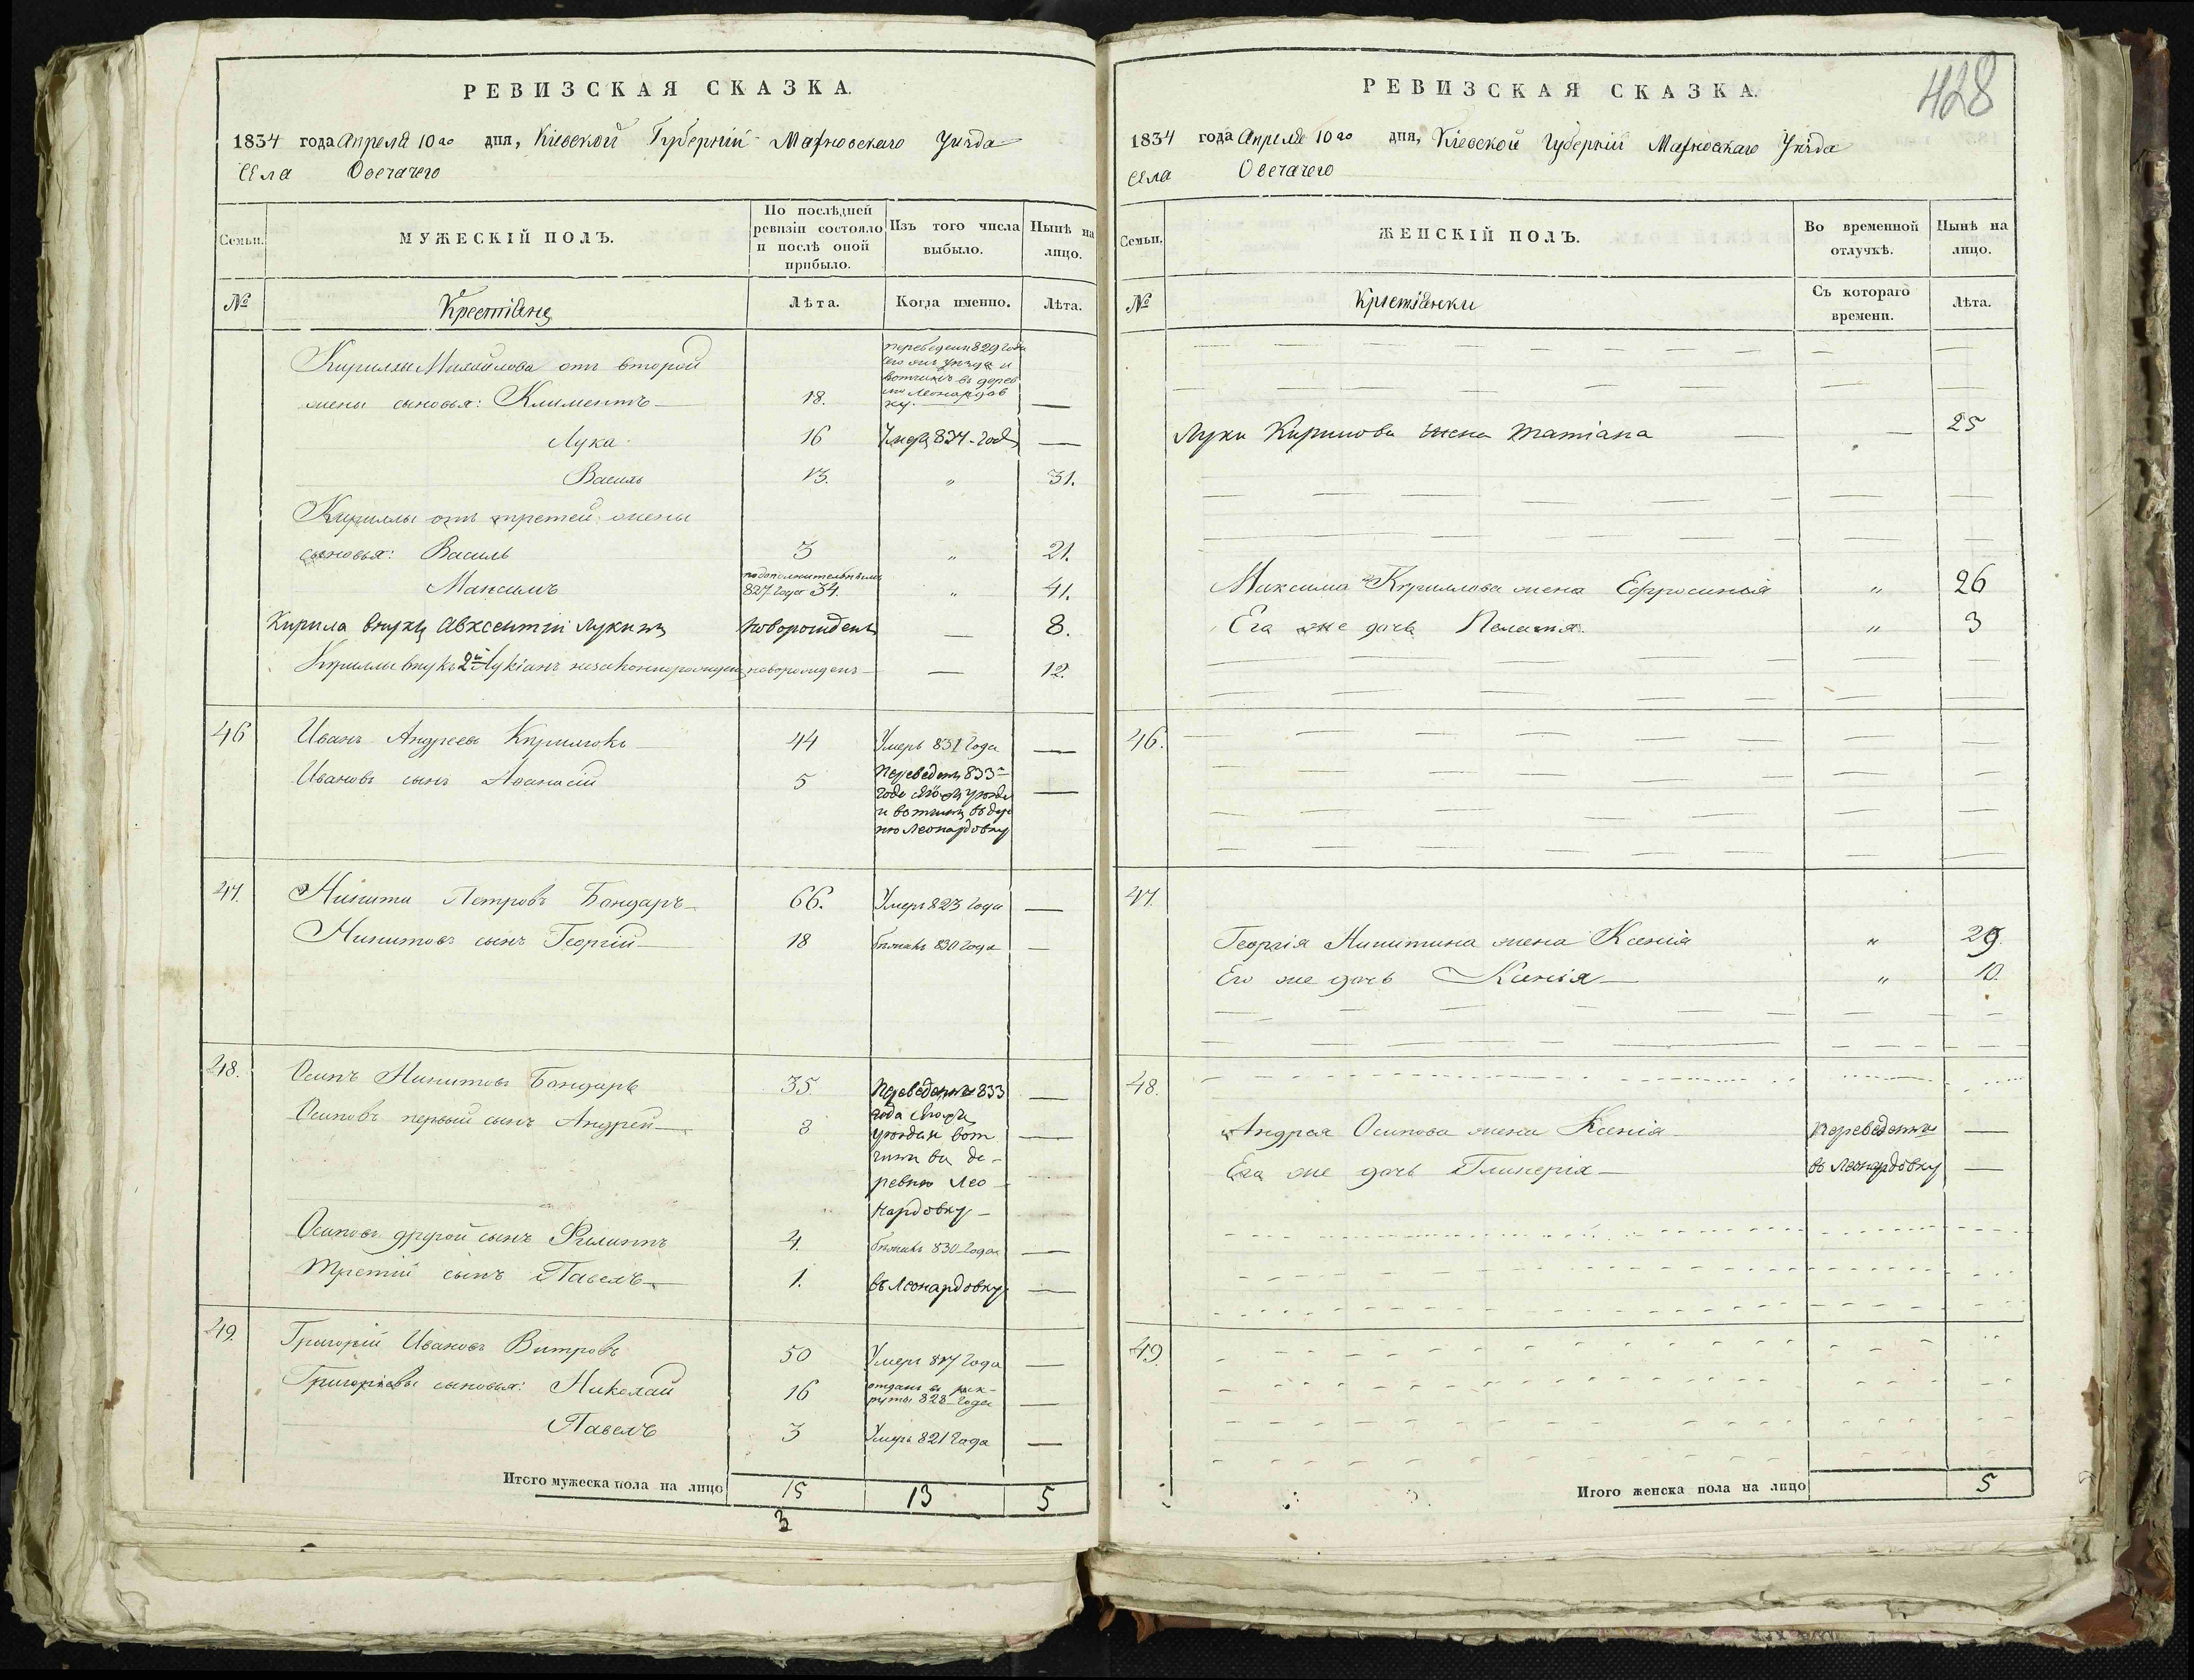 РЕВИЗСКАЯ СКАЗКА.
1834 года Апреля 10го дня, Кіевской Губерніи Махновскаго Уѣзда
Села Овечачего
Семьи.
МУЖЕСКІЙ ПОЛЪ.
По послѣдней ревизіи состояло и послѣ оной прибыло.
Изъ того числа выбыло.
Нынѣ на лицо.
№
Крестіяне
Лѣта.
Когда именно.
Лѣта.
Кирилы Михайлова отъ второй
жены сыновья: Климентъ 18.
Лука 16 834 —
Василь 13. " 31.
Кирилы отъ третей жены
сыновья: Василь 3 " 21.
Максимъ 827 года 34. " 41.
Кирила внукъ Авксентий Лукинъ новорожденъ — 8.
Кирилы внукъ 2й Лукіанъ новорожденъ — 12.
46 Иванъ Андреевъ 44 Умеръ 831 года —
Ивановъ сынъ Афанасій 5 Переведенъ 833
года сего жъ уезда
и вотчины въ дере
вню Леонардовку
47. Никита Петровъ Бондаръ 66. Умеръ 823 года —
Никитовъ сынъ Георгій 18 бѣжалъ 830 года —
48. Осипъ Никитовъ Бондаръ 35. Переведены 833 —
Осиповъ первый сынъ Андрей 8 года —
въ де-
ревню Лео
нардовку —
Осиповъ другой сынъ Филиппъ 4. бѣжалъ 830 года —
Третій сынъ Павелъ 1. въ Леонардовку —
49. Григорій Ивановъ Витровъ 50 Умеръ года —
Григорьевы сыновья: Николай 16 отданъ въ рек-
руты 828 года —
Павелъ 3 Умеръ 821 года —
Итого мужеска пола на лицо 15 13 5
3
428
РЕВИЗСКАЯ СКАЗКА.
1834 года Апреля 10го дня, Кіевской Губерніи Махновскаго Уѣзда
Села Овечачего
Семьи.
ЖЕНСКІЙ ПОЛЪ.
Во временной отлучкѣ.
Нынѣ на лицо.
№
Крестіянки
Съ котораго времени.
Лѣта.
Луки Кирилова жена Татіана — 25
Максима Кирилова жена Ефросинья " 26
Его же дочь Пелагия " 3
46.
47.
Георгія Никитина жена Ксенія " 29.
Его же дочь Ксенія " 10.
48.
Андрея Осипова жена Ксенія Переведены —
Его же дочь Гликерія въ Леонардовку —
49
Итого женска пола на лицо 5